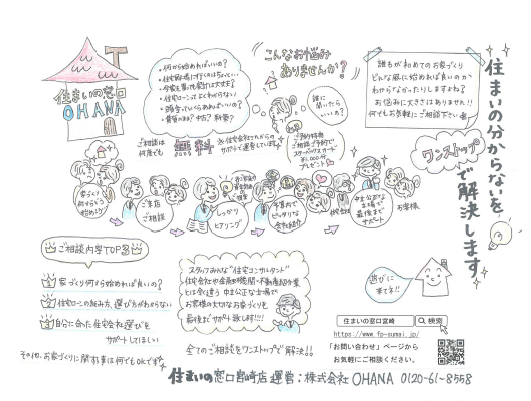 住まいの窓口
OHANA
・何から始めればいいの？
・住宅展示場に行くのはちょっと…
・住宅ローンってよくわからない
・頭金っていくらあればいいの？
・賃貸のまま？中古？新築？
こんなお悩み
ありませんか？
誰に
聞いたら
いいの？
誰もが初めてのお家づくり
どんな風に始めれば良いのか
わからなかったりしますよね？
お悩みに大きさはありません!!
何でもお気軽にご相談下さい
住まいの分からないを
ワンストップ
で解決します
ご相談は
何度でも
無料
※住宅会社さんからの
サポートで運営しています
ご予約特典
ご相談ご予約で
プレゼント
家づくり
何からどう
始めよう
ご来店
ご相談
しっかり
ヒアリング
予算内で
ピッタリな
会社紹介
中立公正な
立場で
最後まで
サポート
お客様
ご相談内容TOP3
1 家づくり何から始めれば良いの？
2 住宅ローンの組み方、選び方がわからない
3 自分に合った住宅会社選びを
サポートしてほしい
その他、お家づくりに関する事は何でもOKです
スタッフみんな“住宅コンサルタント”
住宅会社や金融機関・不動産紹介業
とは全く違う 中立公正な立場で
お客様の大切なお家づくりを
最後までサポート致します!!!
全てのご相談をワンストップで解決!!
遊びに
来てネ!!
住まいの窓口宮崎 検索
https://www.fp-sumai.jp/
「お問い合わせ」ページから
お気軽にご相談ください。
住まいの窓口宮崎店 運営：株式会社 OHANA 0120-61-8558